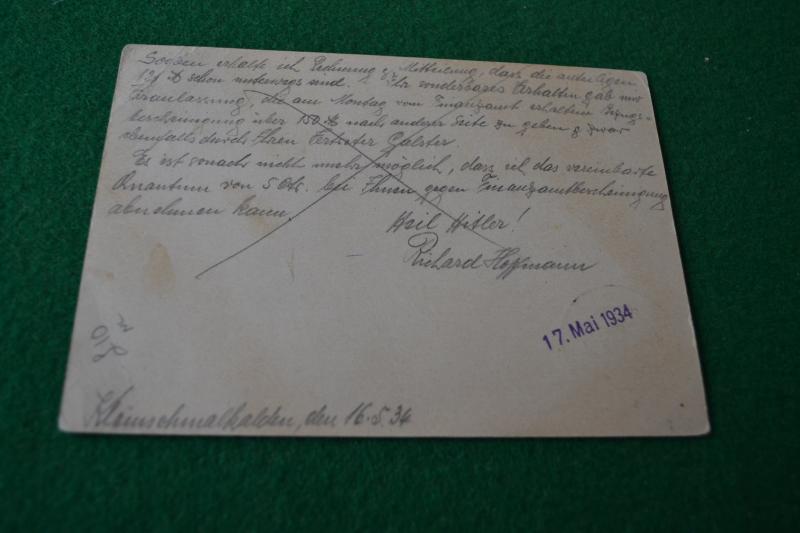 Soeben erhalte ich Rechnung & Mitteilung, dass die
schon unterwegs sind. Ihr sonderbares Erhalten gab mir
Veranlassung, die am Montag vom Finanzamt erhaltene
bescheinigung über 150 nach anderer Seite zu geben & zwar
ebenfalls durch Ihren Vertreter Galster.
Es ist sonach nicht mehr möglich, dass ich das vereinbarte
Quantum von 5 Ctr. bei Ihnen gegen Finanzamtbescheinigung
abnehmen kann.
Heil Hitler!
Richard Hoffmann
17. Mai 1934
Kleinschmalkalden, den 16.5.34